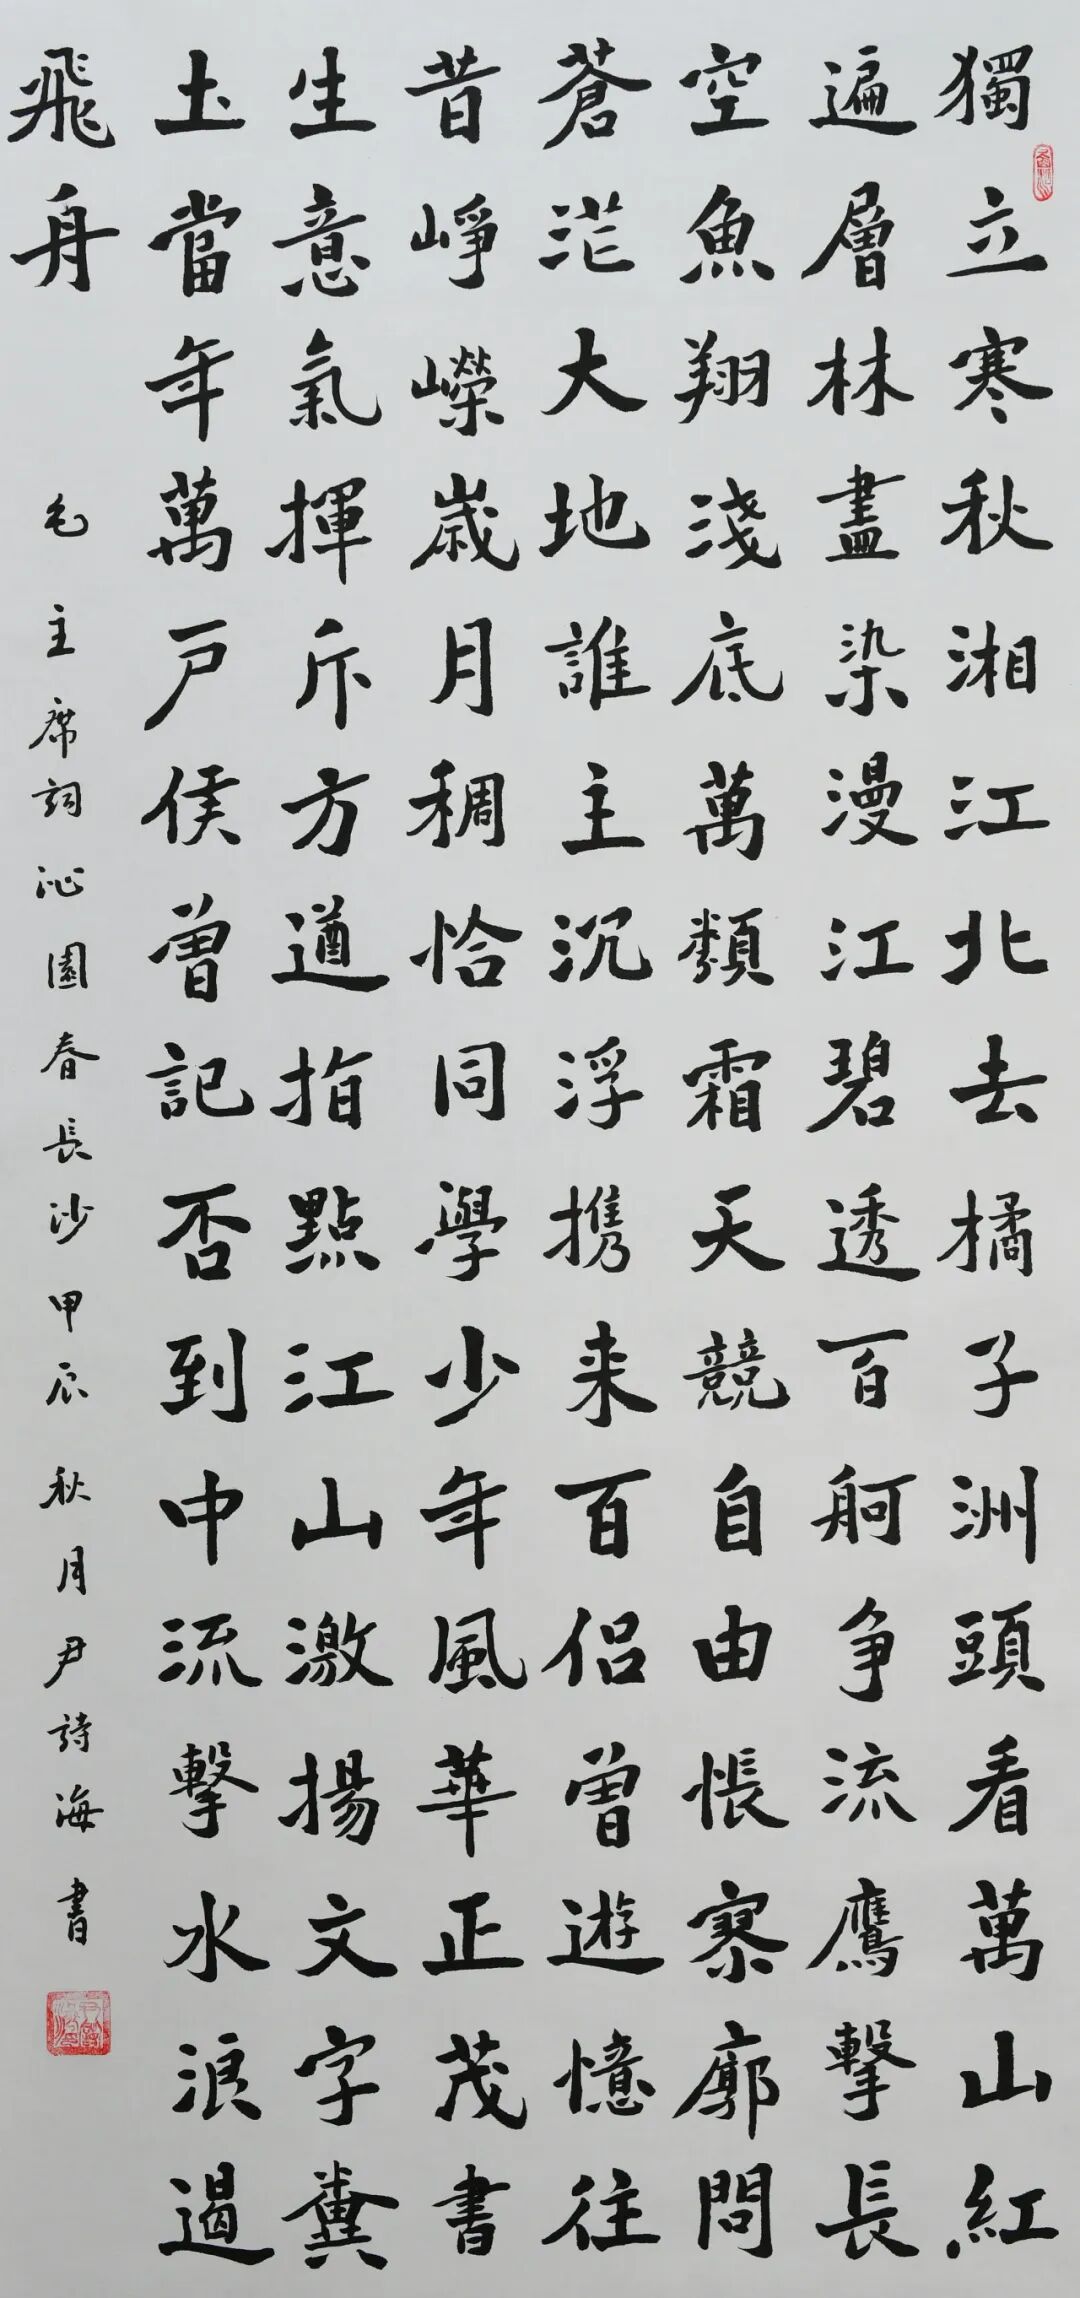 獨立寒秋湘江北去橘子洲頭看萬山紅
遍層林盡染漫江碧透百舸争流鷹擊長
空魚翔淺底萬類霜天競自由悵寥廓問
蒼茫大地誰主沉浮攜来百侣曾遊憶往
昔崢嶸歲月稠恰同學少年風華正茂書
生意氣揮斥方遒指點江山激揚文字糞
土當年萬户侯曾記否到中流擊水浪遏
飛舟
毛主席詞沁園春長沙甲辰秋月尹詩海書